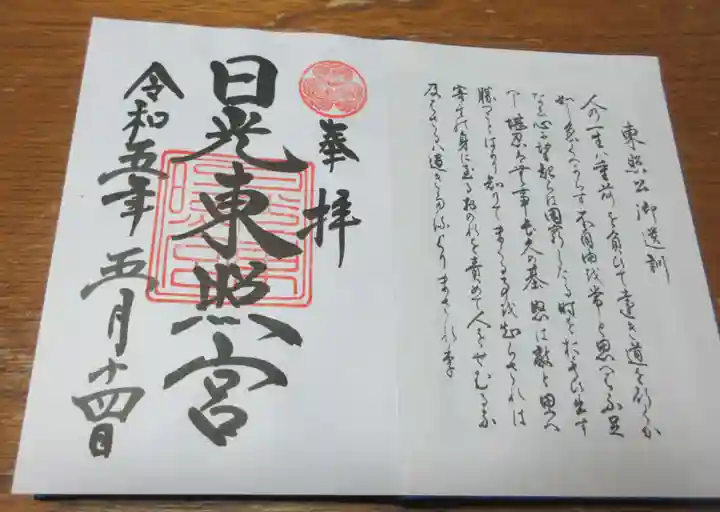 東照公御遺訓
人の一生ハ重荷を負ひて遠き道を行くか
如し急くへからす不自由を常と思へハ不足
なし心に望起らは困窮したる時を思ひ出す
へし堪忍は無事長久の基怒は敵と思へ
勝事はかり知りてまくる事を知らされは
害其身に至るおのれを責めて人をせむるな
及はさるハ過きたるよりまされり
奉拝
日光東照宮
令和五年五月廿四日